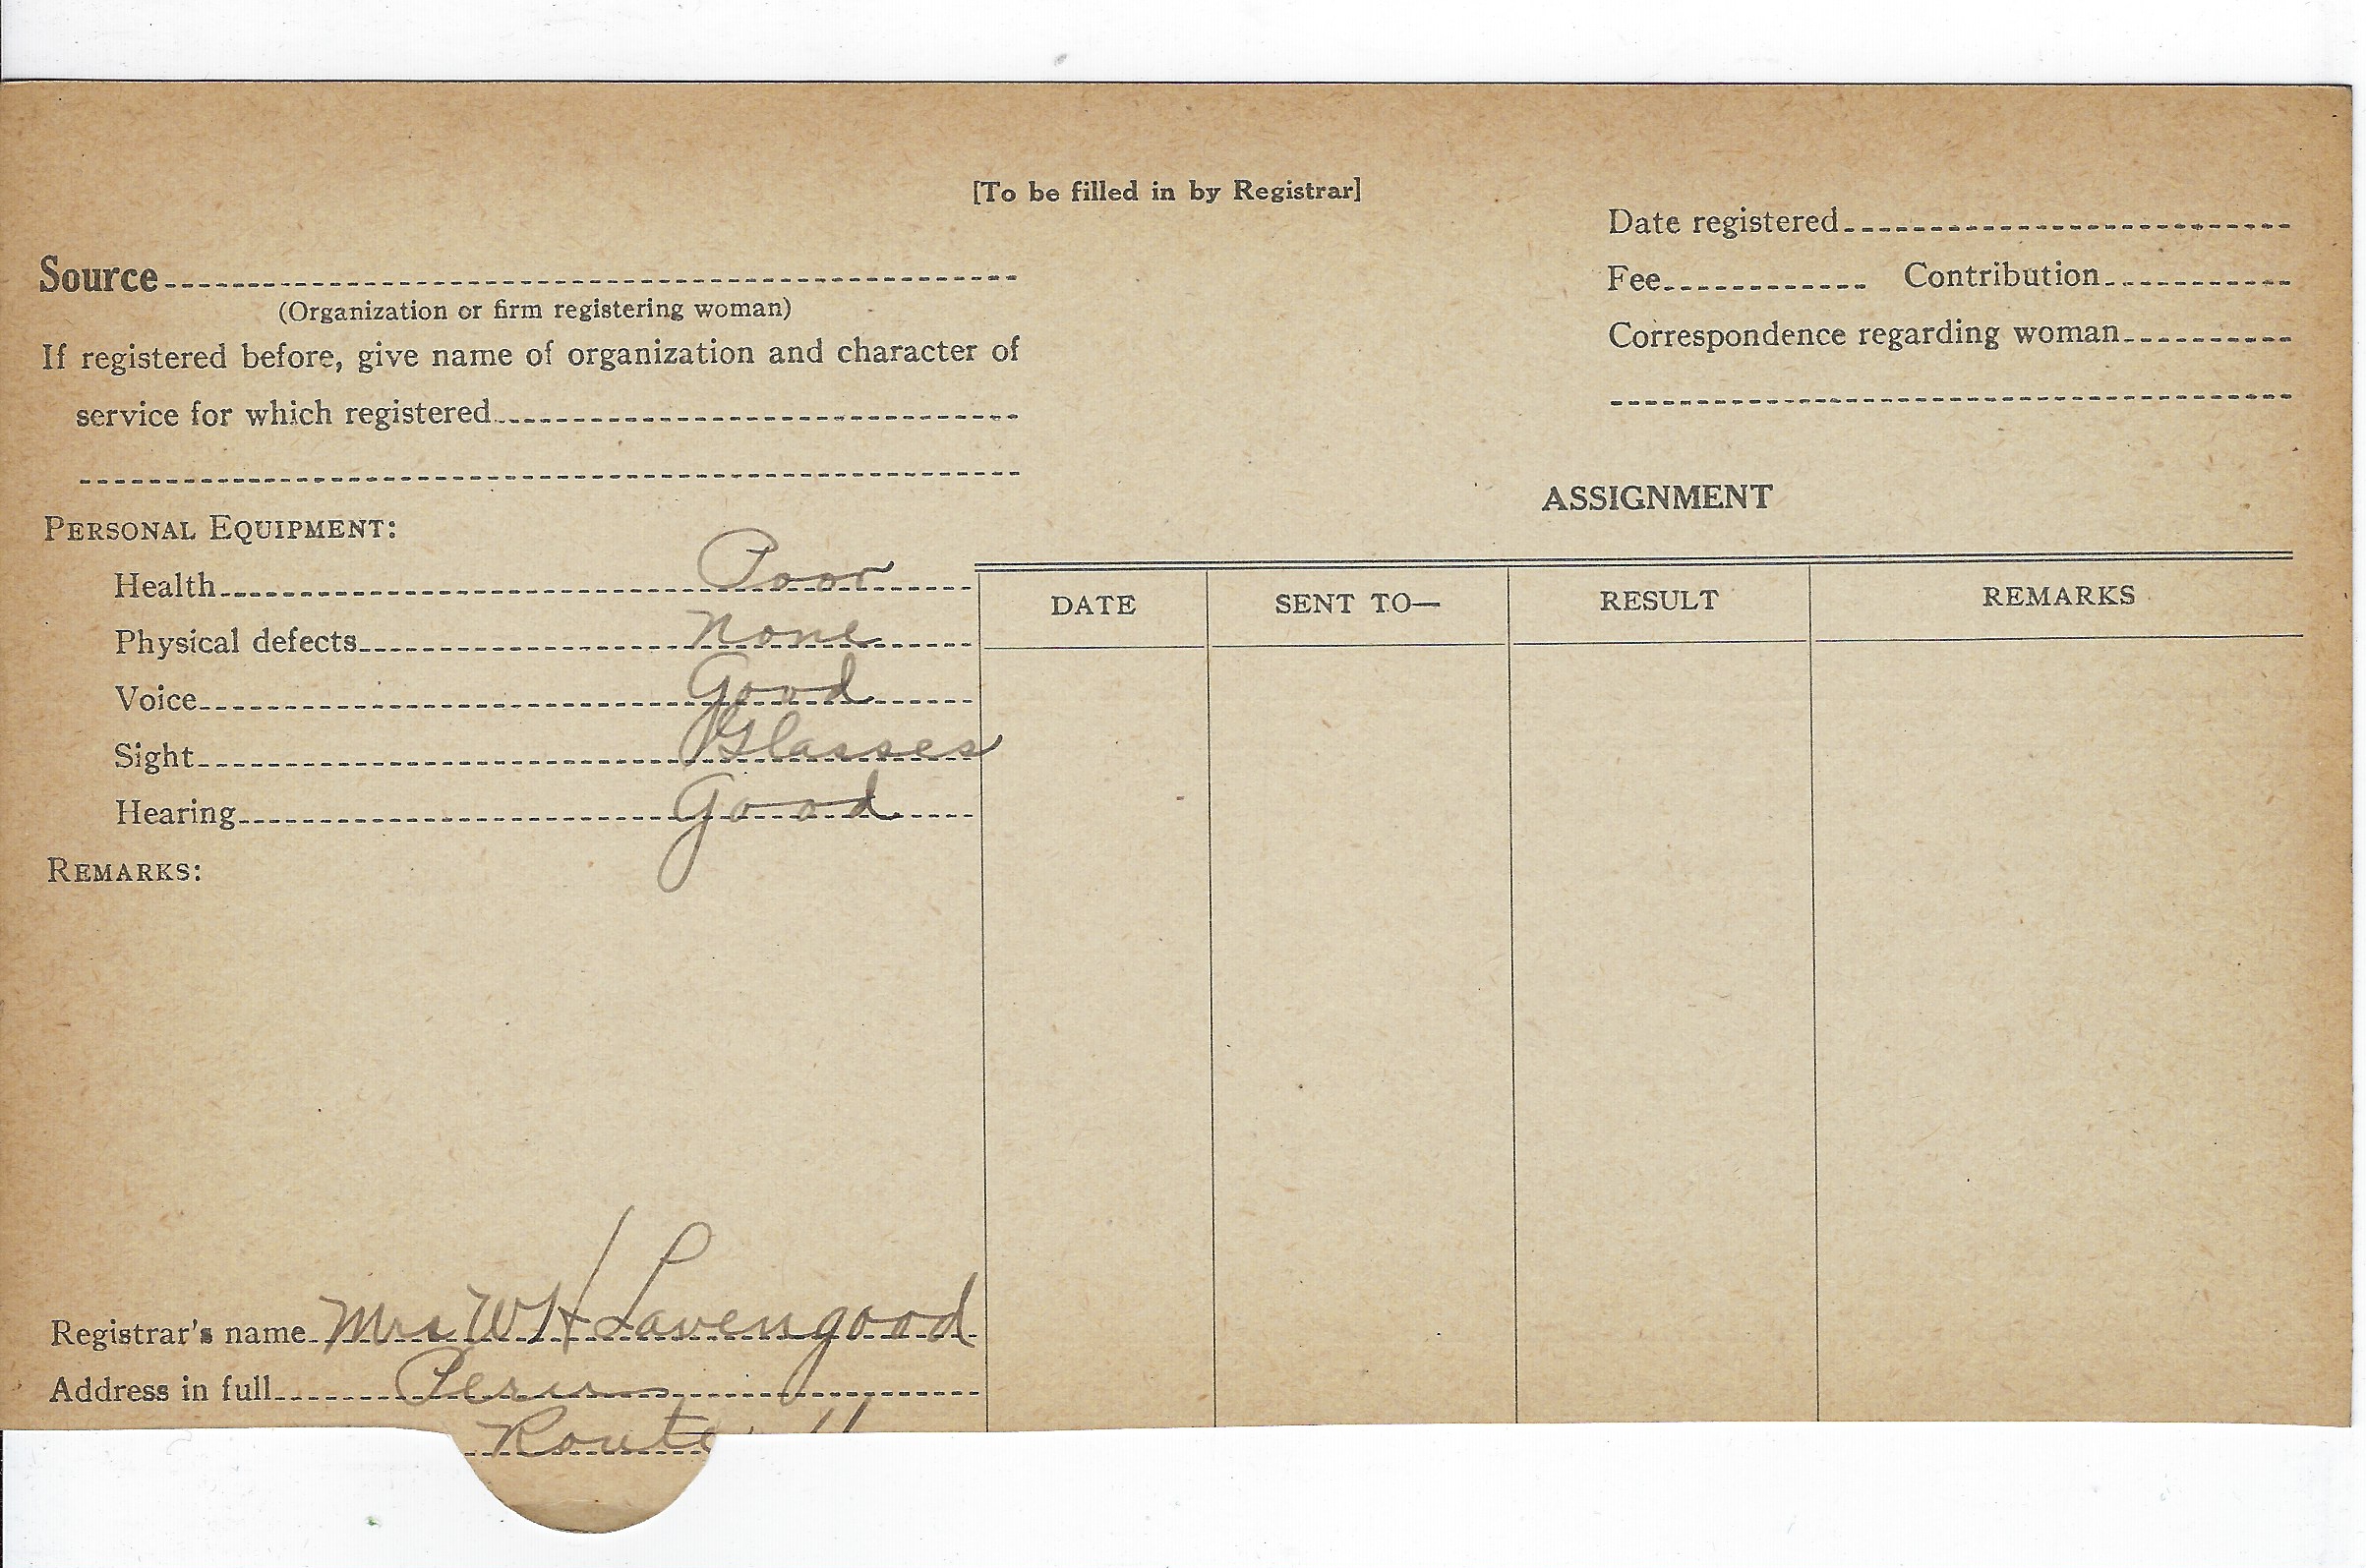 [To be filled in by Registrar]
Date registered
Source
(Organization or firm registering woman)
Fee Contribution
If registered before, give name of organization and character of
service for which registered
Correspondence regarding woman
PERSONAL EQUIPMENT:
Health Poor
Physical defects None
Voice Good
Sight Glasses
Hearing Good
REMARKS:
ASSIGNMENT
DATE SENT TO— RESULT REMARKS
Registrar's name Mrs W H Lavengood
Address in full Peru
Route 11